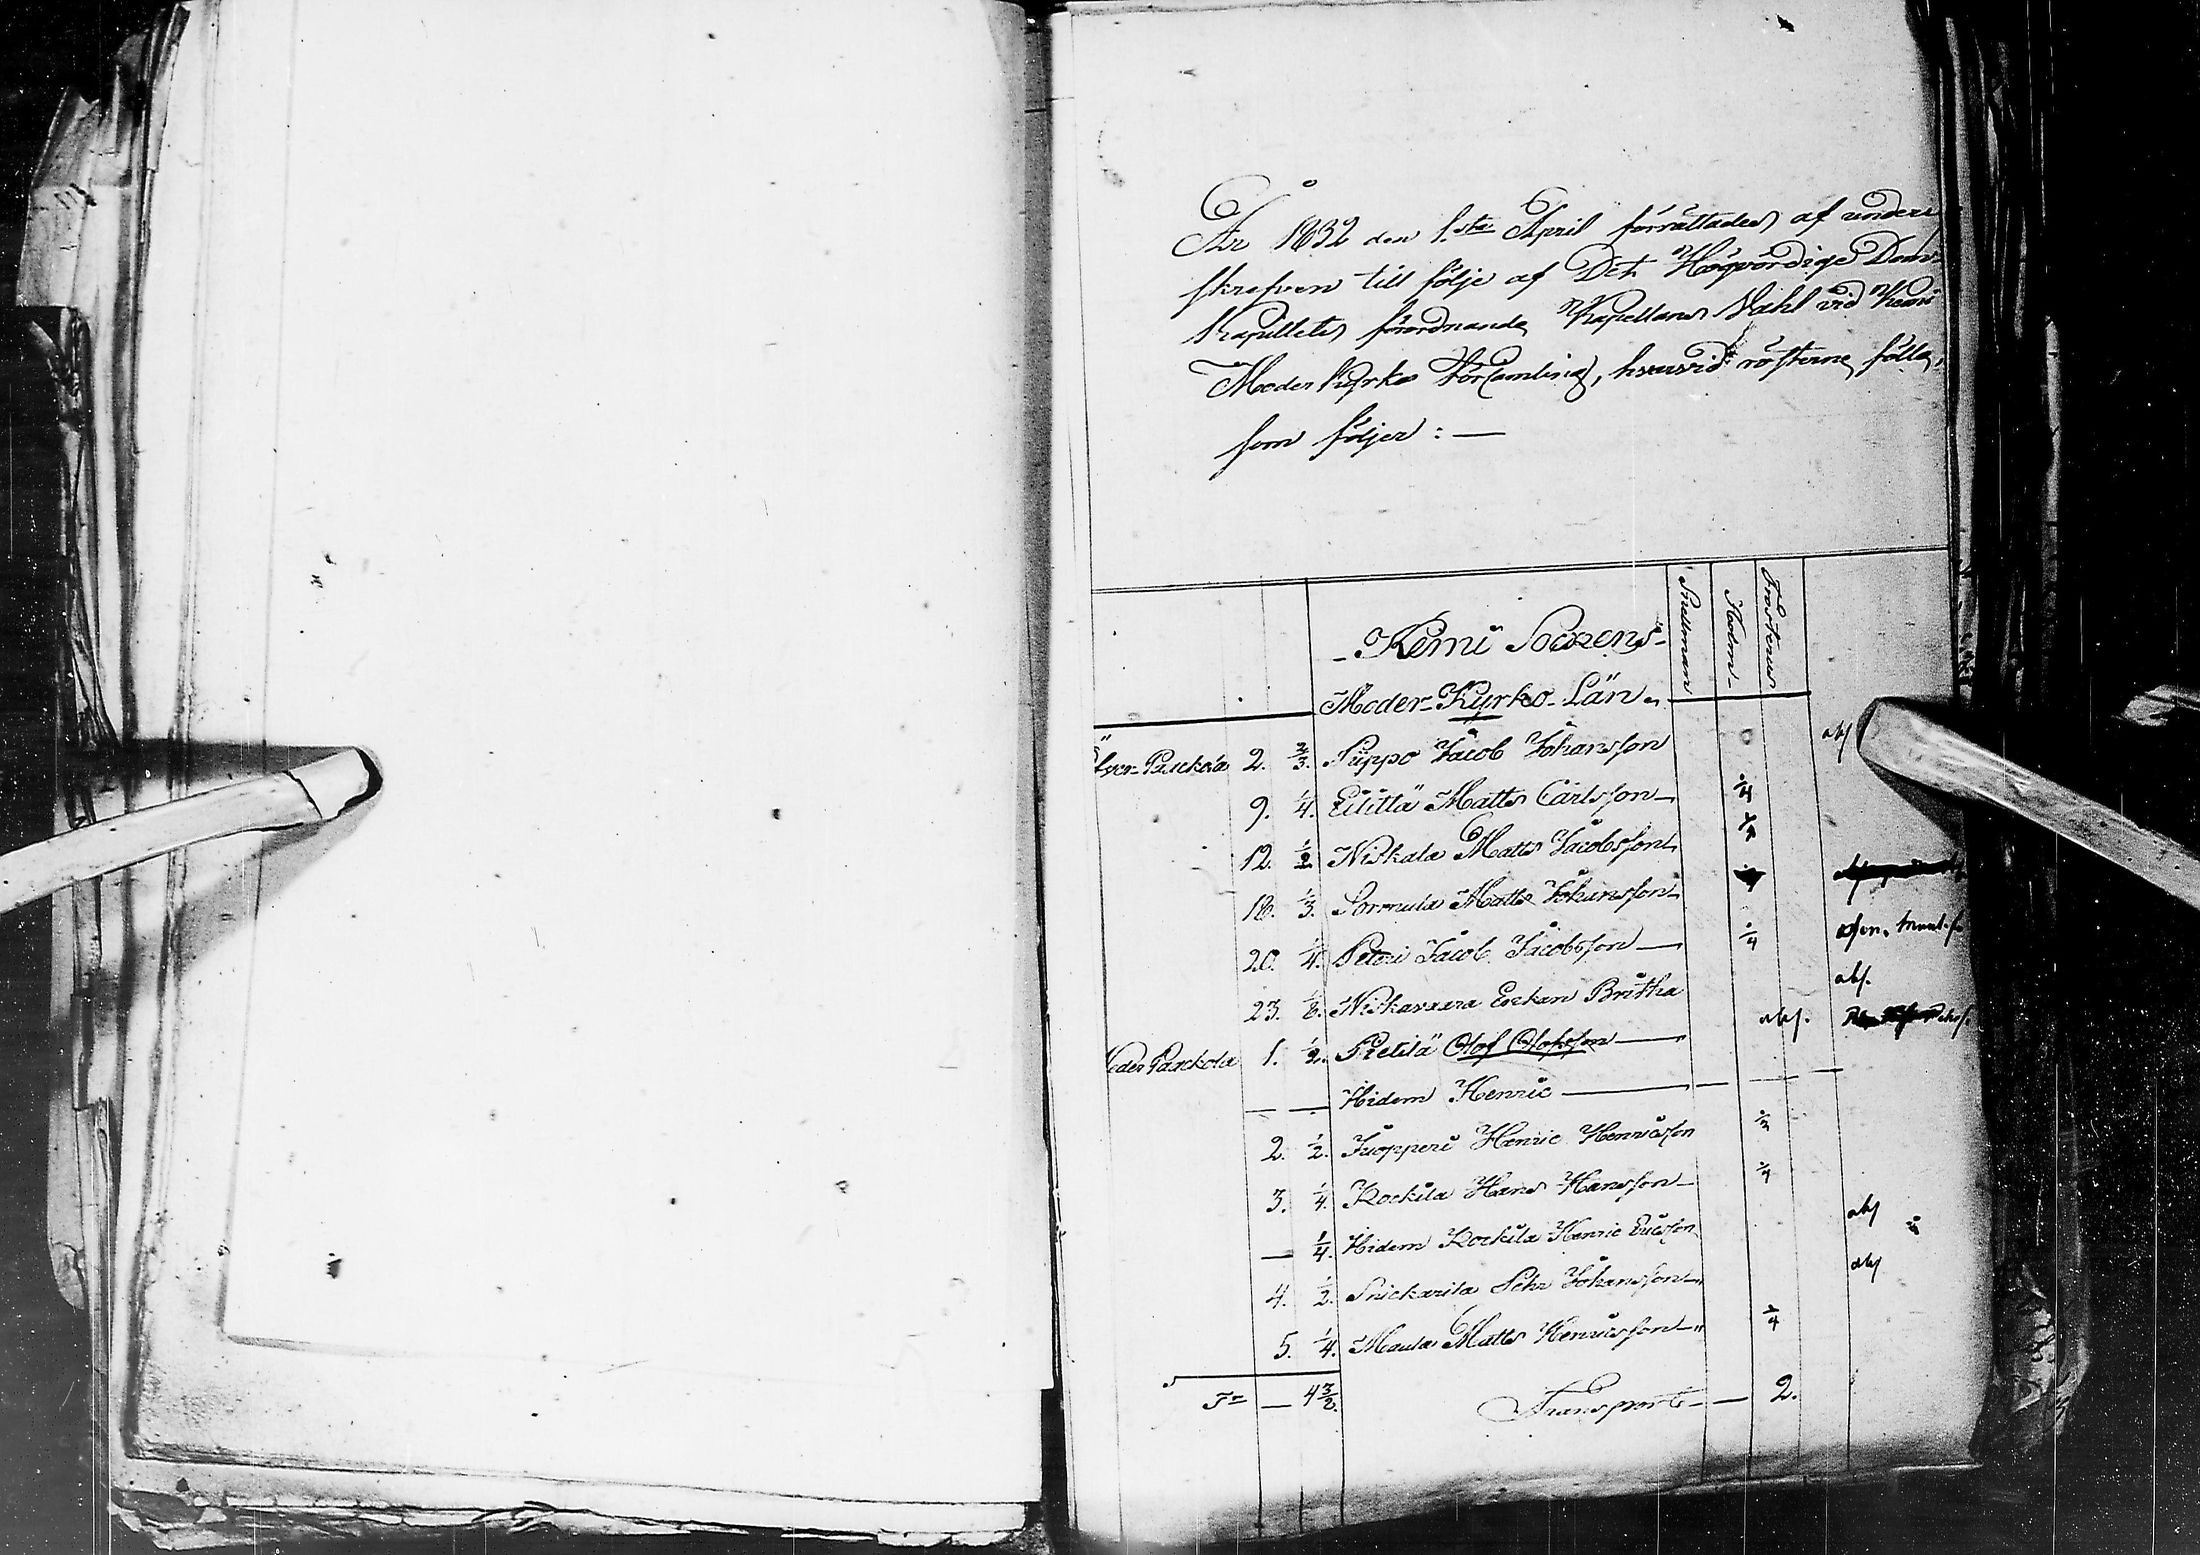 År 1832 den 1.sta April förrättades af under
skrefven till följe af Det Högvördige Dom-
Kapitlets förordnande Kapellans Wahl vid Kemi
Moder Kyrko Församling, hvarvid rösterne föllo,
som följer: —
Kemi Sockens
Moder-Kyrko-Län
Snellman
Holm
Frosterus
Öfver Paackola 2. 2/3. Puppo Jacob Johansson abs
9. 1/4. Eilittä Matts Carlsson 1/4
12. 1/2 Niskala Matts Jacobsson
18. 1/3. Sormula Matts Johansson
20. 1/4. Peteri Jacob Jacobsson 1/4
23. 1/8. Niskavaara Enkan Britha abs.
Neder Paackola 1. 1/2. Pietilä Olof Olofsson abs.
— — Hidem Henric —
2. 1/2. Juopperi Henric Henricsson 1/2
3. 1/4. Rockila Hans Hansson 1/4
— 1/4. Hidem Rockila Henric Ericsson abs
4. 1/2. Snickarila Pehr Johansson abs
5. 1/4. Maula Matts Henricsson 1/4
Sa — 4 3/8. Transport — 2.